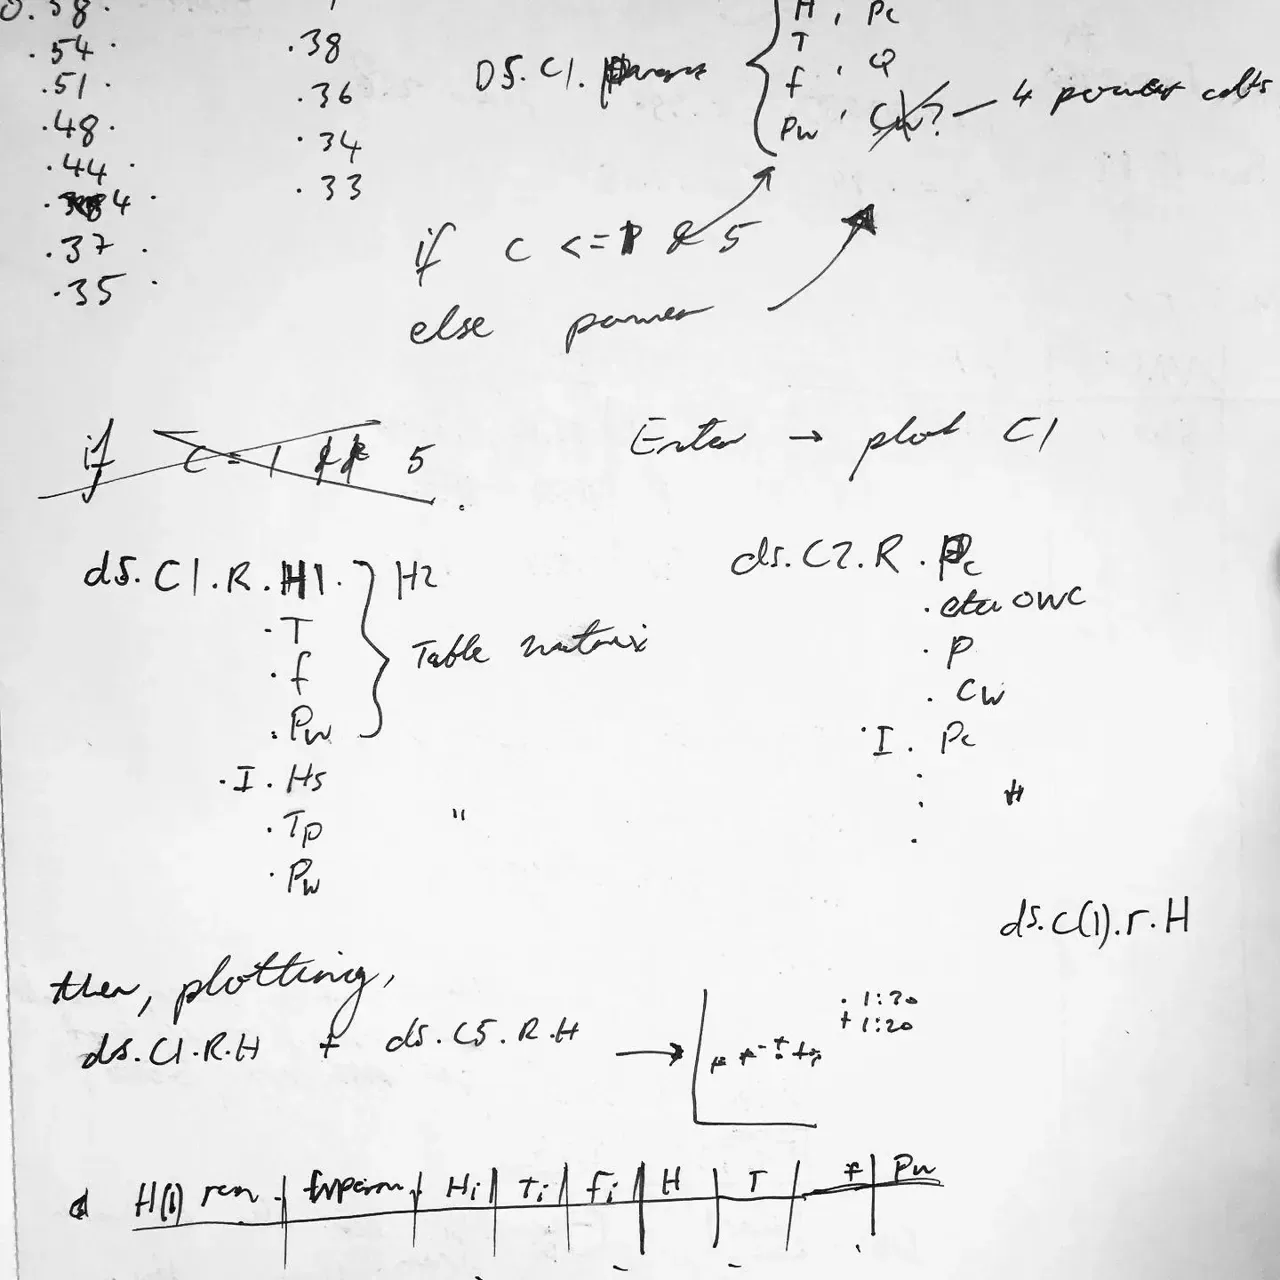 0.58.
.54 .
.51 .
.48 .
.44 .
4 .
.37 .
.35 .
.38
.36
.34
.33
DS.C1.
H , Pc
T
f , Q
Pw , Cw? — 4 power
if C <= 1 & 5
else power
if C = 1 5
Enter → plot C1
ds.C1.R.H1. } H2
.T
.f
.Pw
Table matrix
.I.Hs
.Tp "
.Pw
ds.C2.R.Pc
.eta OWC
.P
.Cw
.I.Pc
.
. "
.
ds.C(1).r.H
then, plotting,
ds.C1.R.H + ds.C5.R.H →
. 1:30
+ 1:20
H(1) run | | Hi | Ti | fi | H | T | f | Pw